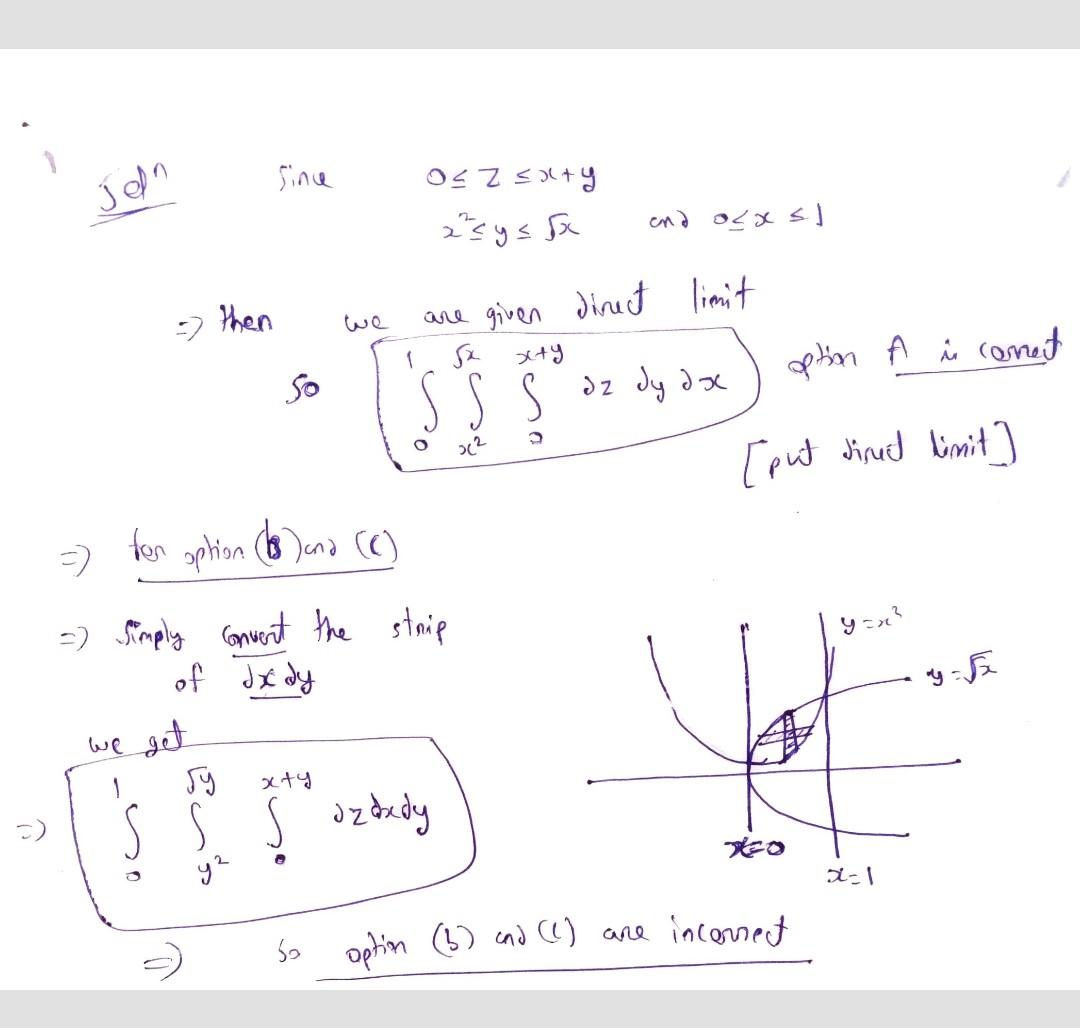 Soln Since 0 ≤ z ≤ x+y
x² ≤ y ≤ √x and 0 ≤ x ≤ 1
=> then we are given direct limit
So ∫₀¹ ∫_{x²}^{√x} ∫₀^{x+y} dz dy dx option A is correct
[put direct limit]
=> for option (b) and (c)
=> Simply convert the strip
of dx dy
we get
=> ∫₀¹ ∫_{y²}^{√y} ∫₀^{x+y} dz dx dy
y = x²
y = √x
x=0
x=1
=> So option (b) and (c) are incorrect